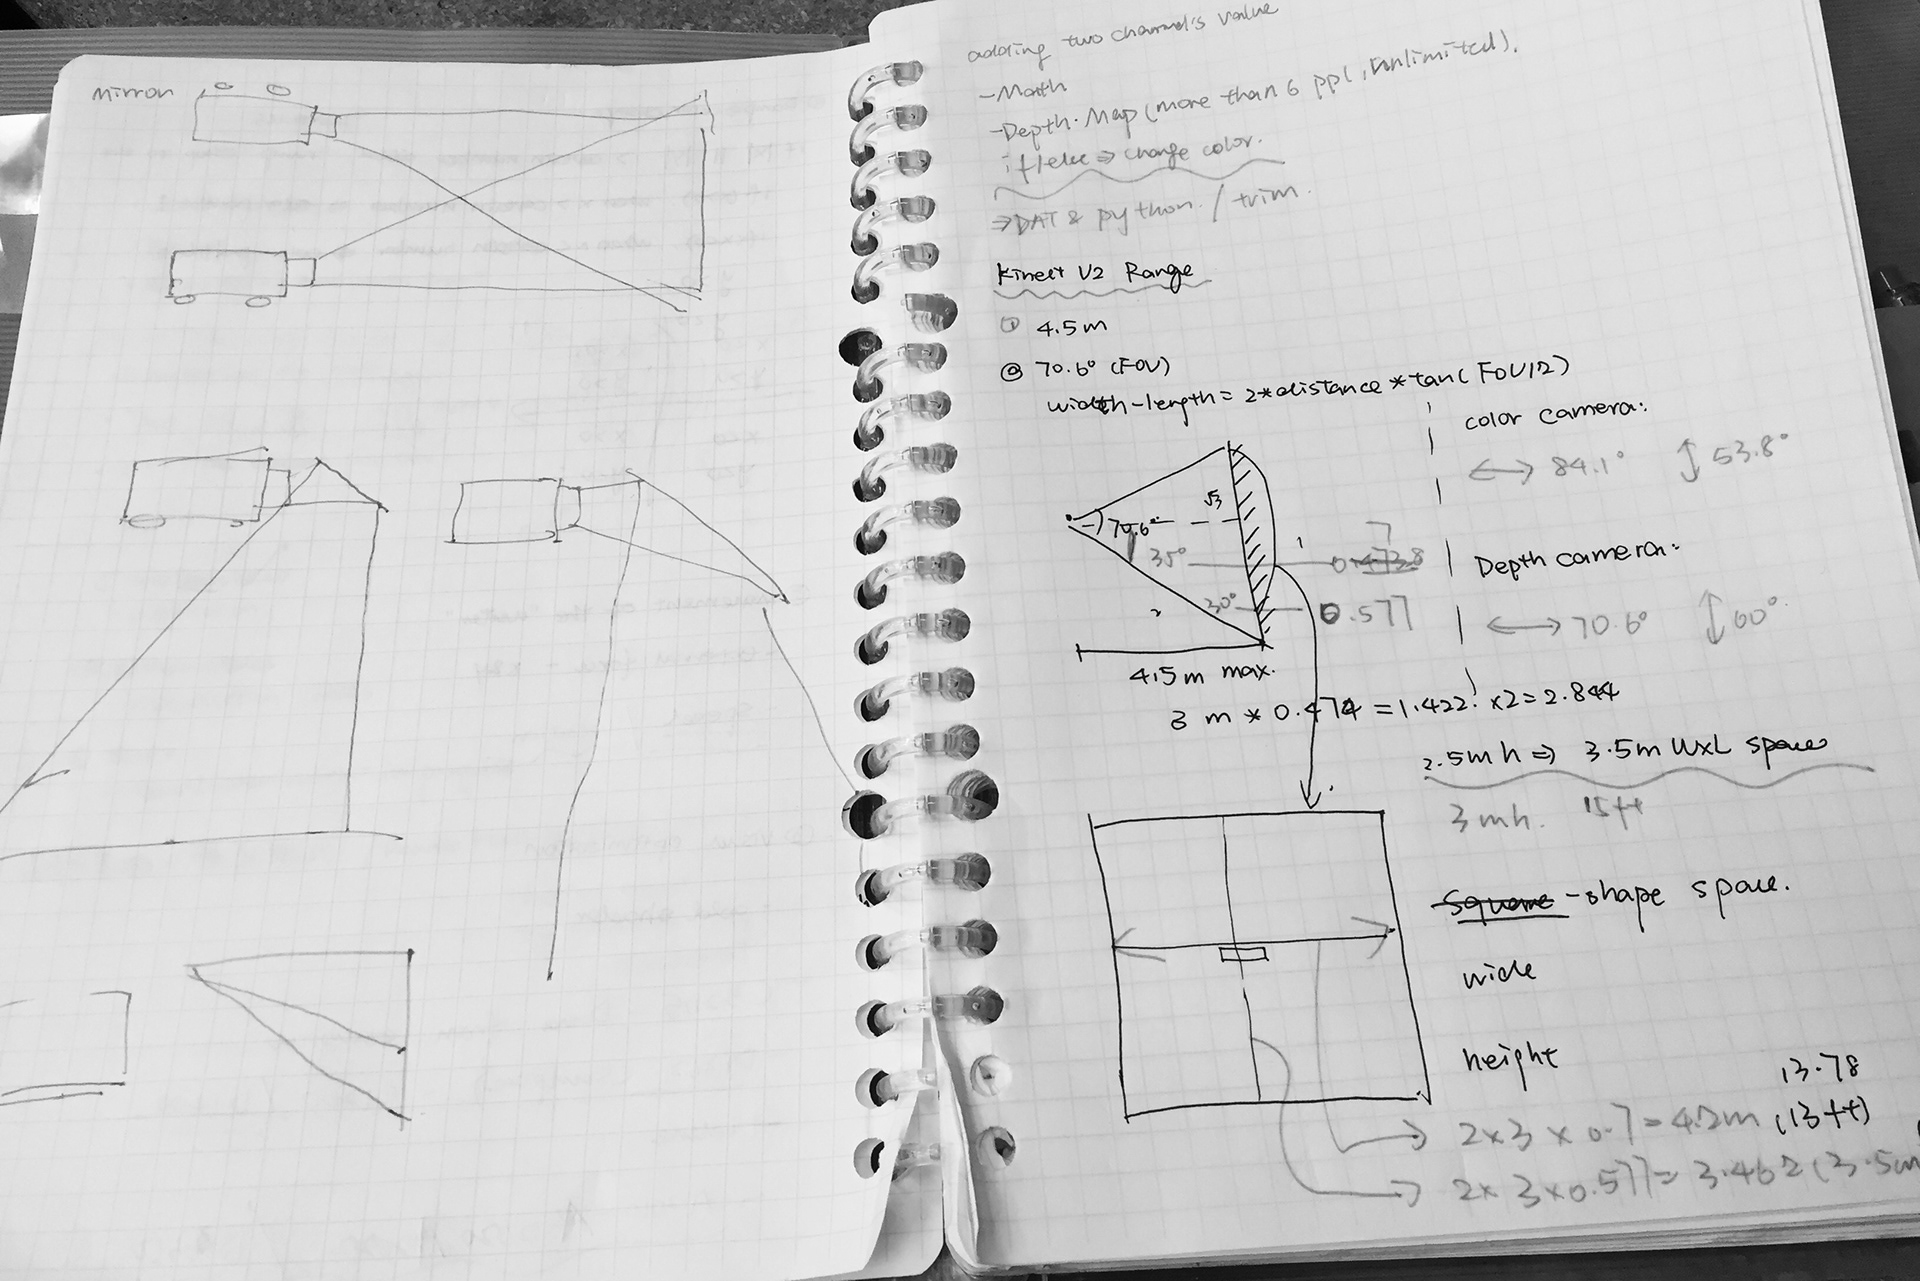 mirror
adding two channel's value
-Math
-Depth Map (more than 6 ppl, unlimited).
if/else ⇒ change color.
⇒ DAT & python. / trim.
Kinect V2 Range
① 4.5m
② 70.6° (FOV)
width-length = 2*distance*tan(FOV/2)
color camera:
↔ 84.1° ↕ 53.8°
√3
70.6°
35°
1
7
0.4738
Depth camera:
30°
0.577
2
↔ 70.6° ↕ 60°
4.5m max.
3 m * 0.474 = 1.422. x2 = 2.844
2.5mh ⇒ 3.5m WxL space
3mh. 15ft
Square-shape space.
wide
height
13.78
2x3x0.7=4.2m (13ft)
2x3x0.577=3.462 (3.5m